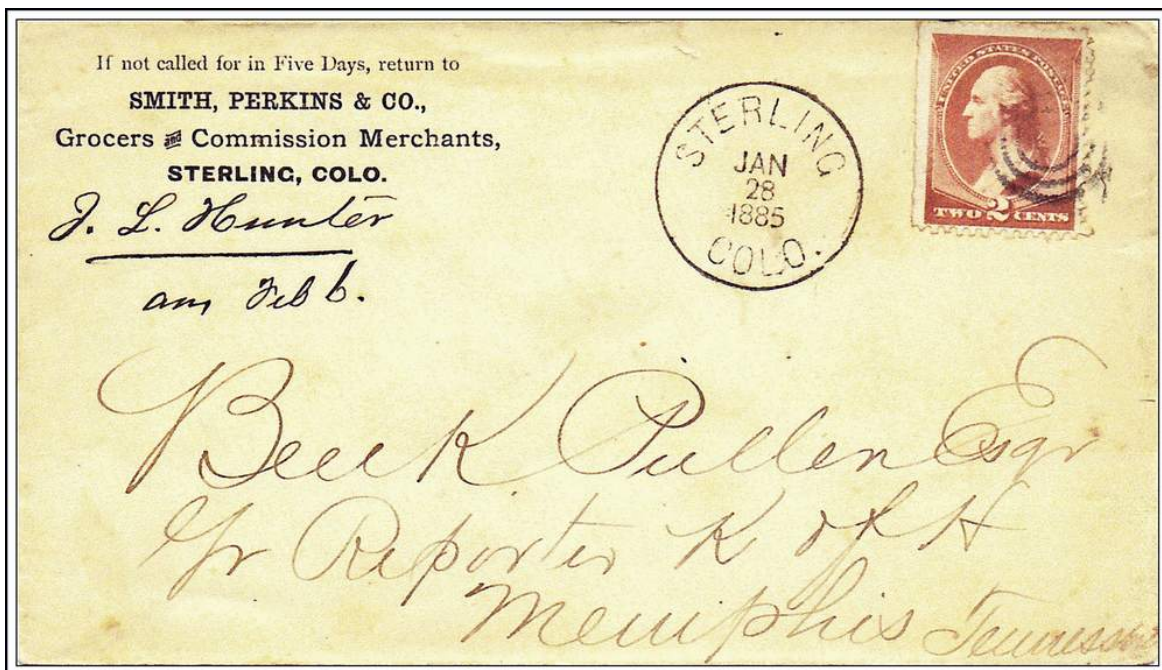 If not called for in Five Days, return to
SMITH, PERKINS & CO.,
Grocers and Commission Merchants,
STERLING, COLO.
J. L. Hunter
ans Feb 6.
STERLING
JAN
28
1885
COLO.
UNITED STATES POSTAGE
TWO 2 CENTS
Pullen Esqr
Reporter K of H
Memphis Tennessee